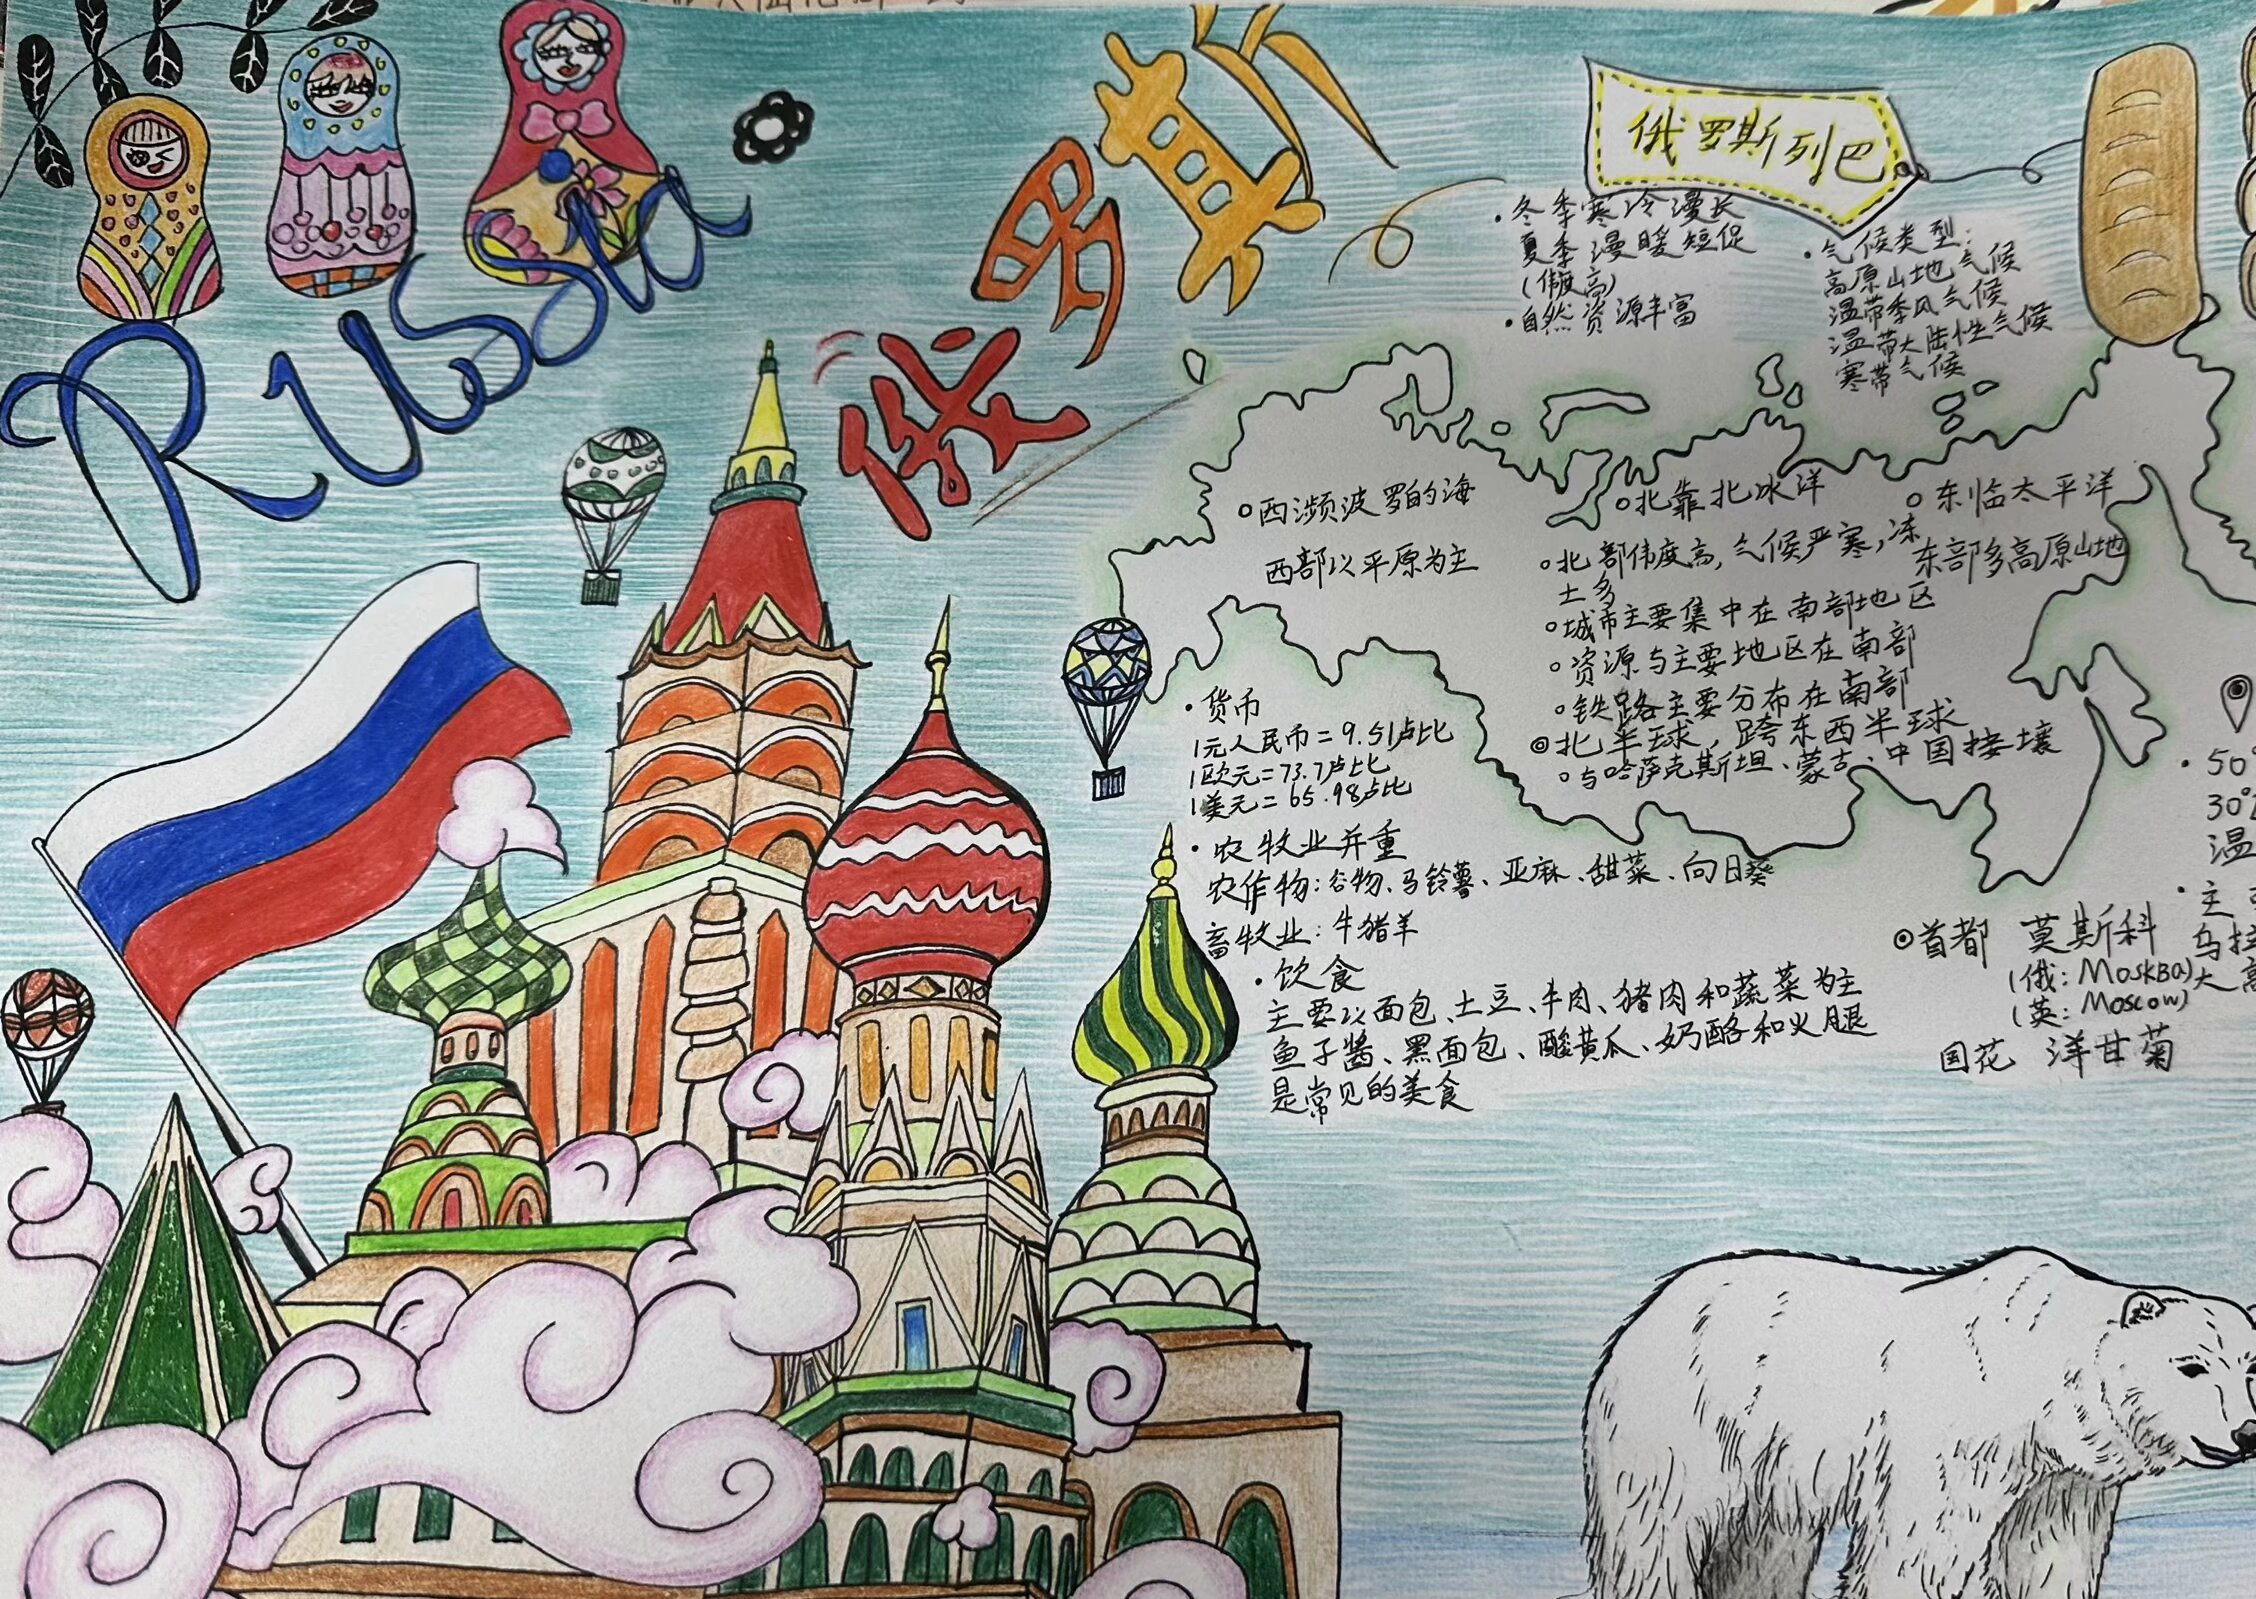 Russia
俄罗斯
俄罗斯列巴
·冬季寒冷漫长
夏季漫暖短促
(纬度高)
·自然资源丰富
·气候类型:
高原山地气候
温带季风气候
温带大陆性气候
寒带气候
○西濒波罗的海
西部以平原为主
○北靠北冰洋
○东临太平洋
东部多高原山地
○北部纬度高,气候严寒,冻
土多
○城市主要集中在南部地区
○资源与主要地区在南部
○铁路主要分布在南部
◎北半球,跨东西半球
○与哈萨克斯坦、蒙古、中国接壤
·货币
1元人民币=9.51卢比
1欧元=73.7卢比
1美元=65.98卢比
·农牧业并重
农作物:谷物、马铃薯、亚麻、甜菜、向日葵
畜牧业:牛猪羊
·饮食
主要以面包、土豆、牛肉、猪肉和蔬菜为主
鱼子酱、黑面包、酸黄瓜、奶酪和火腿
是常见的美食
◎首都 莫斯科
(俄:Москва)
(英:Moscow)
国花 洋甘菊
·50°
30°
温
·主
乌拉
大高